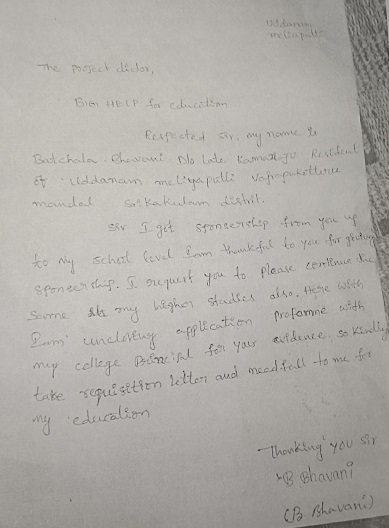 Uddanam
meliaputti
The Project dictor,
BIG HELP for education
Respected sir, my name is
Batchala Bhavani D/o late Kamaraju Resident
of Uddanam meliyaputti Vajrapukotturu
mandal Srikakulam distrit.
Sir I got sponsership from you up
to my school level I am thankful to you for
sponsership. I request you to please continue the
same my higher studies also. Here with
I am unclosing application profamne with
my college Principal for your evidence, so kindly
take requisition letter and needfull to me for
my education
Thanking you sir
B Bhavani
(B Bhavani)